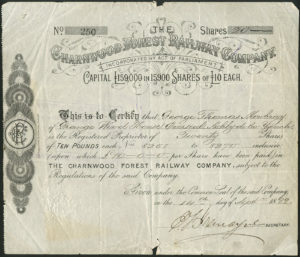 No 250 THE Shares 20
CHARNWOOD FOREST RAILWAY COMPANY.
INCORPORATED BY ACT OF PARLIAMENT
CAPITAL £159,000 IN 15,900 SHARES OF £10 EACH.
This is to Certify that George Thomas
of House
is the Registered Proprietor of Twenty Shares
of TEN POUNDS each, Nos inclusive
upon which £10-0-0 per Share have been paid, in
THE CHARNWOOD FOREST RAILWAY COMPANY, subject to the
Regulations of the said Company.
Given under the Common Seal of the said Company
the day of April
SECRETARY.